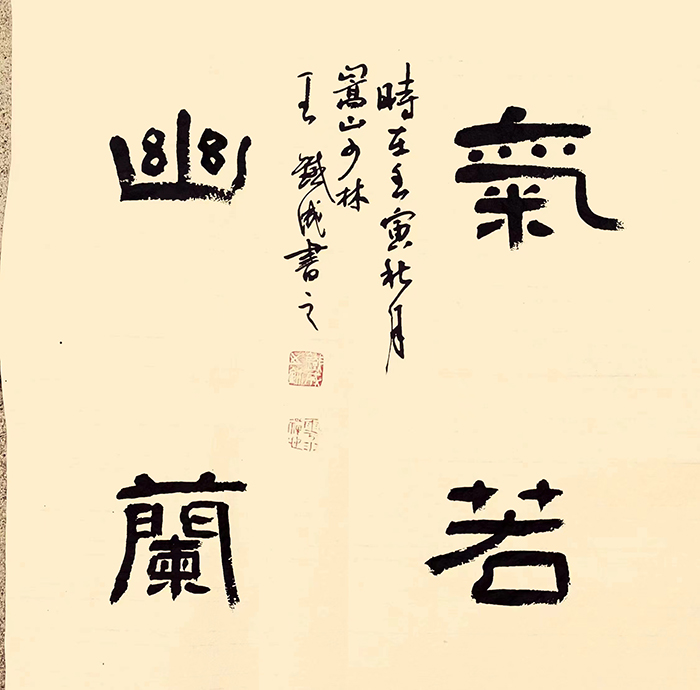 氣若
幽蘭
時在壬寅秋月
嵩山少林
王鐵成書之